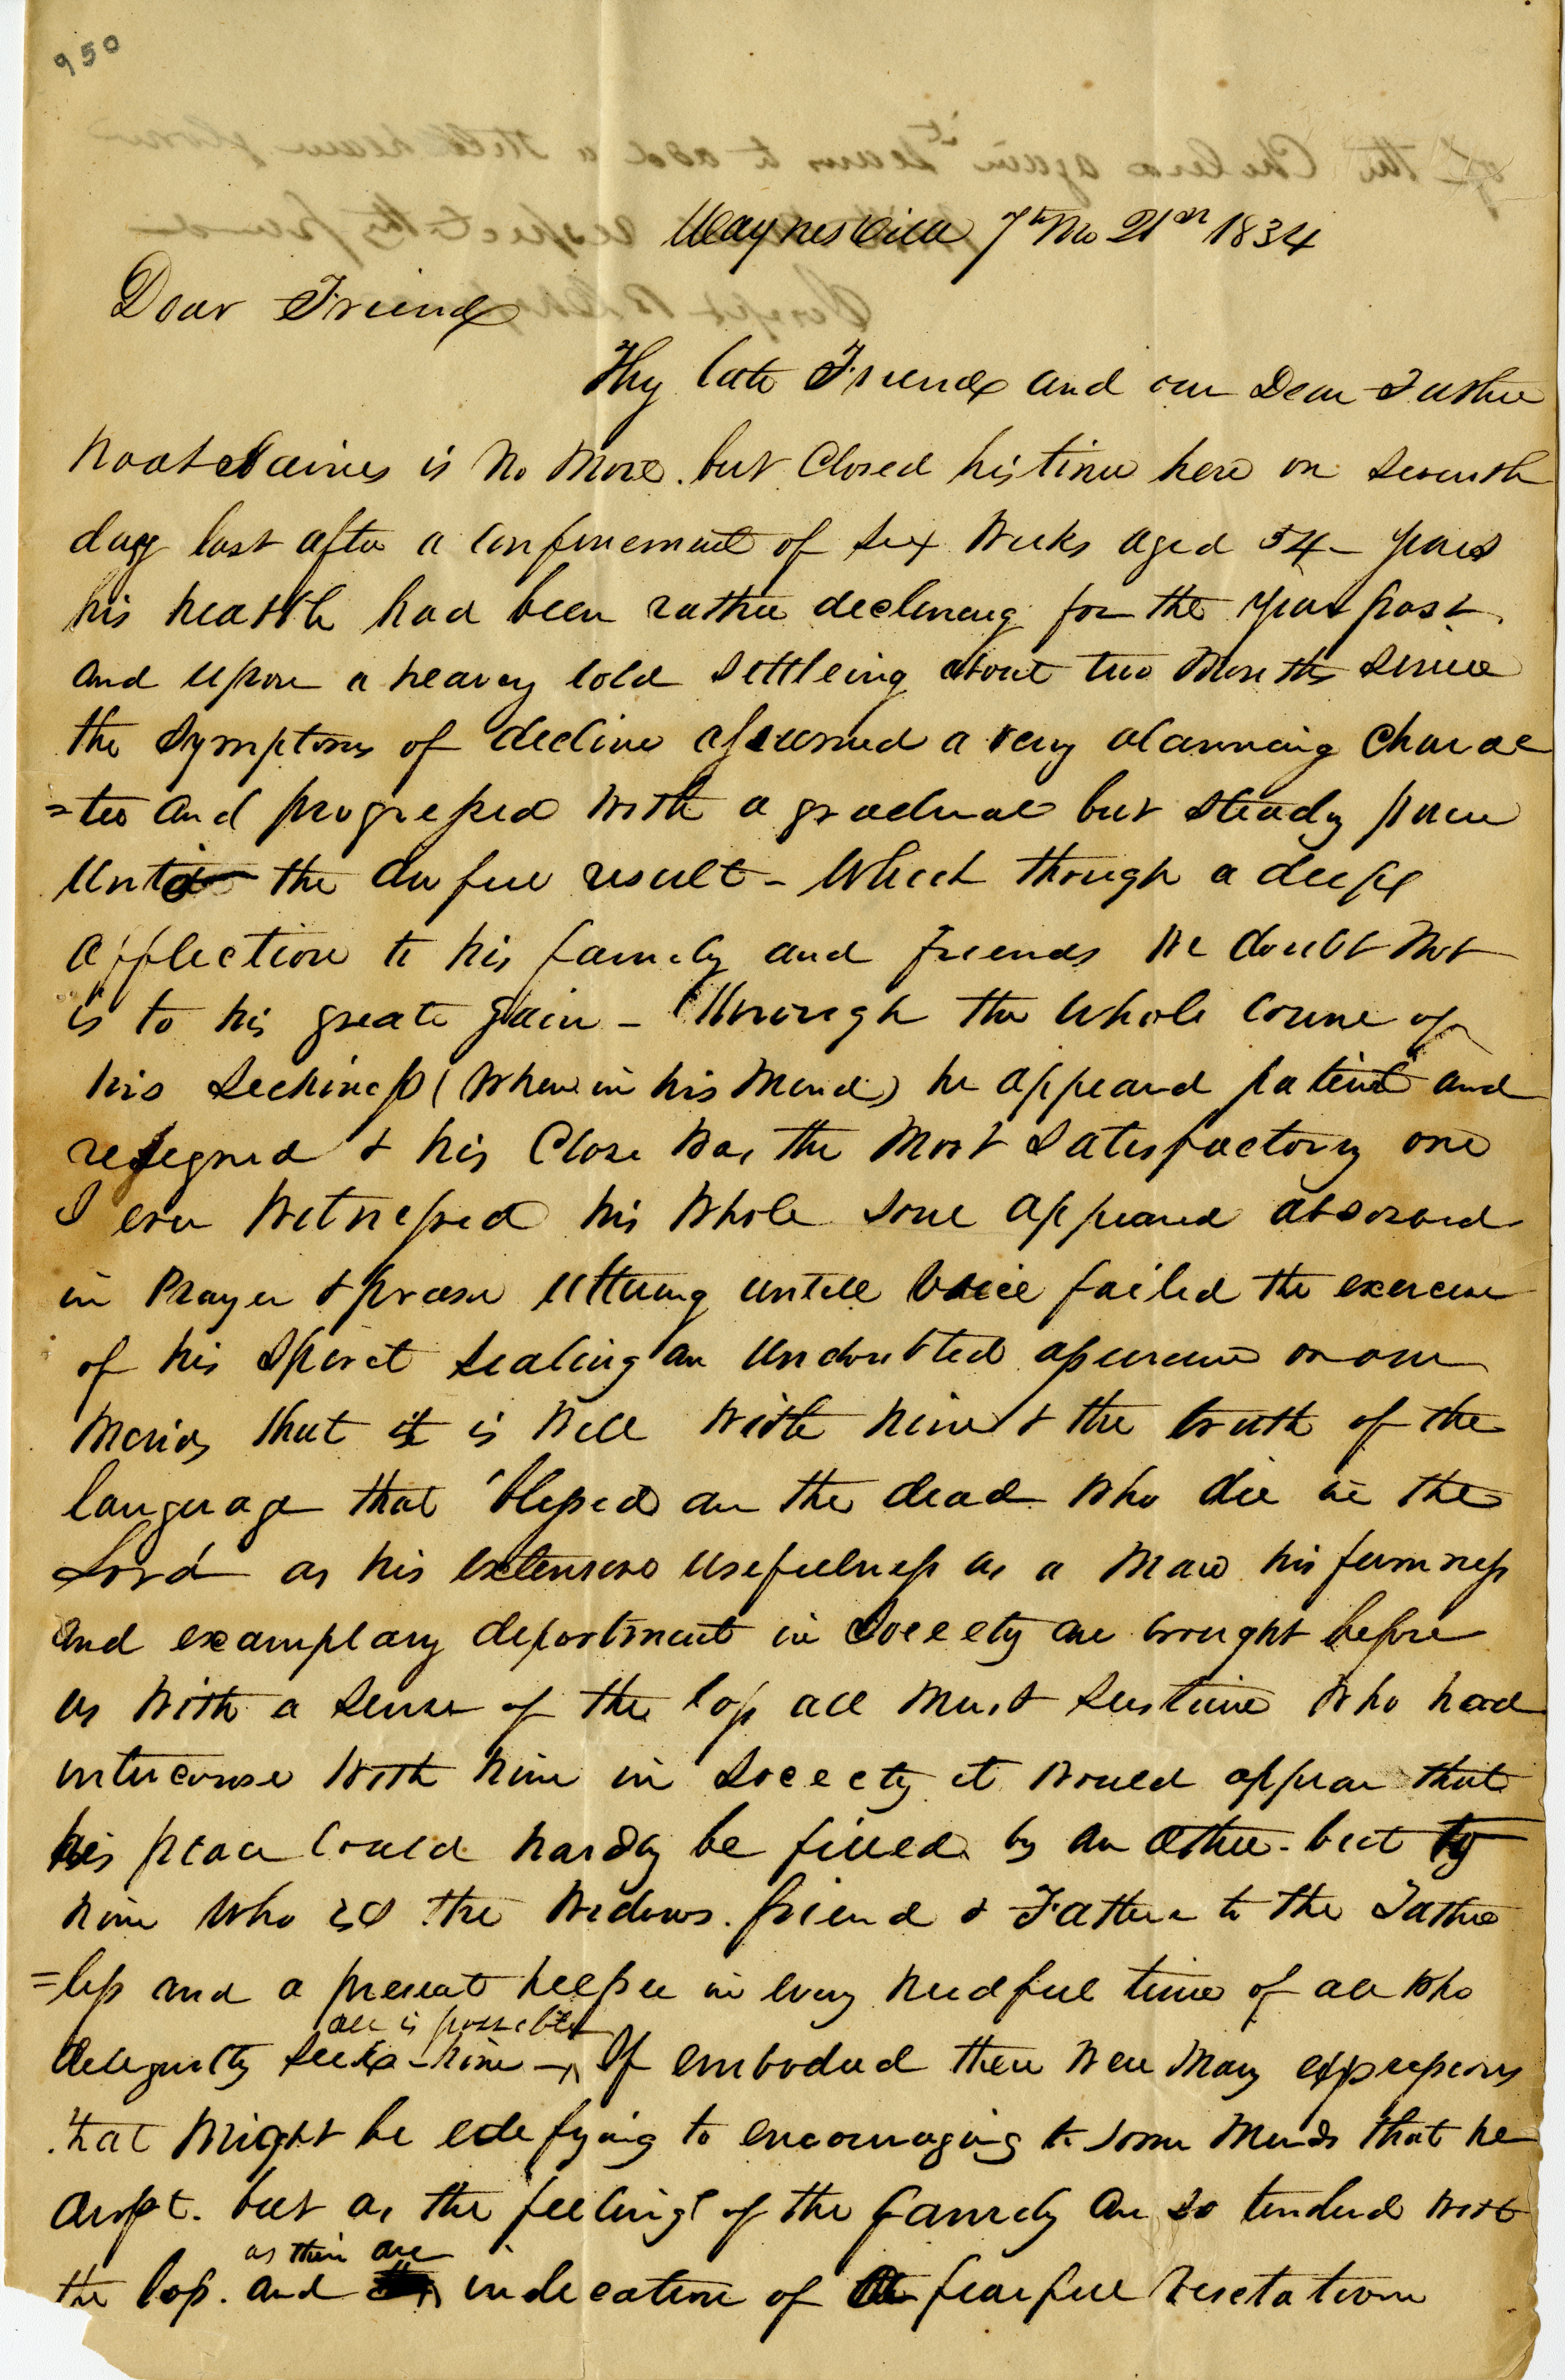 950
Waynesville 7th Mo 21st 1834
Dear Friend
Thy late Friend and our Dear Father
Noah Haines is no more. but Closed his time here on seventh
day last after a confinement of six weeks aged 54 - years
his health had been rather declineing for the year past
and upon a heavey cold settleing about two Months since
the symptoms of decline assumed a very alarming charac
=ter and progressed with a gradual but steady pace
until the awful result - Which though a deep
afflection to his family and friends we doubt not
is to his great gain - Through the whole course of
his seckness (when in his mind) he appeard patient and
resegned & his Close was the most satesfactory one
I ever wetnessed his whole soul appeared absorbed
in Prayer & praese uttering untill voice failed the exercise
of his speret sealing an undoubted assurance on our
minds that it is well with him & the truth of the
language that 'blessed are the dead who die in the
Lord as his extensive usefulness as a man his firmness
and examplary deportment in Soceety are brought before
us with a sense of the loss all must sustaine who had
intercourse with him in Soceety it would appear that
his place could hardly be filled by an other - but to
him who is the widows friend & Father to the Father
=less and a present helper in every needful time of all who
all is possible
delegently seeks him - If embodied there were many expressions
that might be edefying to encouraging to some minds that he
dropt. but as the feelings of the family are so tendered with
as their are
the loss. and indecation of a fearful visetation